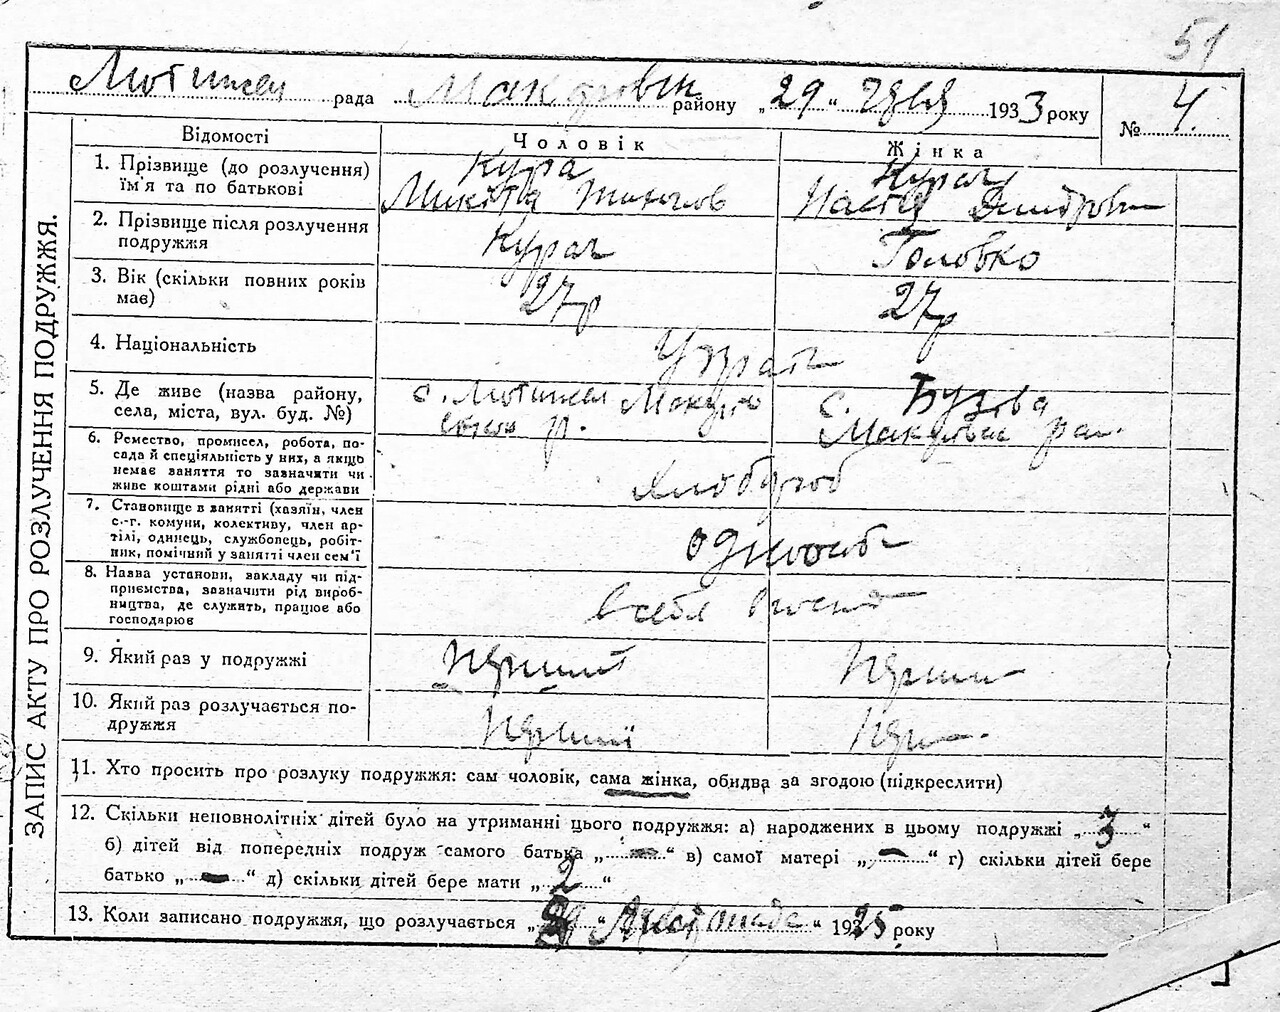 51
Мотижен рада Макарівськ району „29“ 1933 року
№ 4
ЗАПИС АКТУ ПРО РОЗЛУЧЕННЯ ПОДРУЖЖЯ.
Відомості Чоловік Жінка
1. Прізвище (до розлучення) Кура Курач
ім'я та по батькові Микита Настя Дмитров
2. Прізвище після розлучення
подружжя Курач Головко
3. Вік (скільки повних років
має) 27р 27р
4. Національність Україн
5. Де живе (назва району, с. Мотижен Макаро Бузова
села, міста, вул. буд. №) р. с. Макарівськ рай.
6. Ремество, промисел, робота, по-
сада й спеціяльність у них, а якщо
немає заняття то зазначити чи
живе коштами рідні або держави Хлібороб
7. Становище в занятті (хазяїн, член
с.-г. комуни, колективу, член ар-
тілі, одинець, службовець, робіт-
ник, помічний у занятті член сем'ї одноосіб
8. Назва установи, закладу чи під-
приємства, зазначити рід вироб-
ництва, де служить, працює або в себе
господарює
9. Який раз у подружжі Перший Перши
10. Який раз розлучається по-
дружжя Перший Пер
11. Хто просить про розлуку подружжя: сам чоловік, сама жінка, обидва за згодою (підкреслити)
12. Скільки неповнолітніх дітей було на утриманні цього подружжя: а) народжених в цьому подружжі „3“
б) дітей від попередніх подруж самого батька „—“ в) самої матері „—“ г) скільки дітей бере
батько „—“ д) скільки дітей бере мати „2“
13. Коли записано подружжя, що розлучається „ “ Листопада “ 1925 року